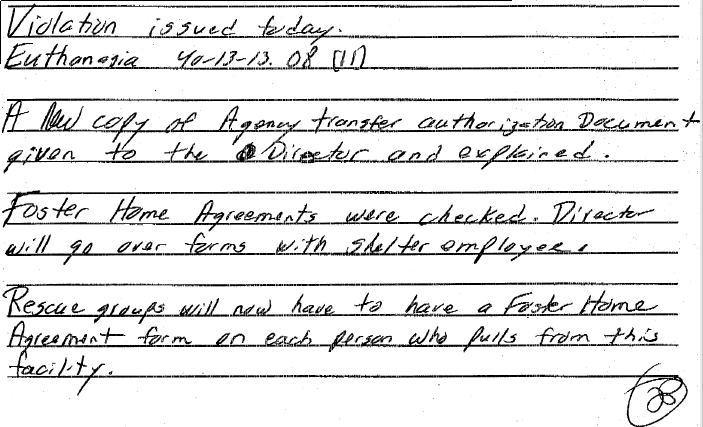 Violation issued today.
Euthanasia 40-13-13.08 (11)
A New copy of Agency transfer authorization Document
given to the Director and explained.
Foster Home Agreements were checked. Director
will go over forms with shelter employee.
Rescue groups will now have to have a Foster Home
Agreement form on each person who pulls from this
facility.